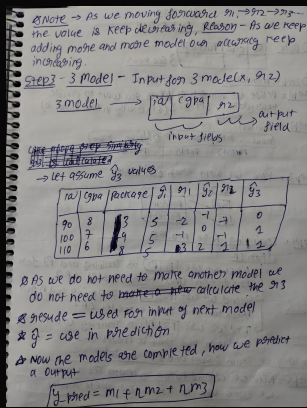 Note → As we moving forward r1, → r2 → r3 -
the value is keep decreasing, Reason - As we keep
adding more and more model our accuracy keep
increasing.
Step3 - 3 Model - Input for 3 model (x, r2)
3 model → iq | cgpa | r2
input fields output field
→ let assume ŷ3 values
iq | cgpa | package | ŷ1 | r1 | ŷ2 | r2 | ŷ3
90 8 3 5 -2 -1 -1 0
100 7 4 5 -1 0 -1 1
110 6 8 5 3 2 1 1
As we do not need to make another model we
do not need to calculate the r3
resude = used for input of next model
ŷ = use in prediction
Now the models are completed, how we predict
a output
y pred = m1 + n m2 + n m3